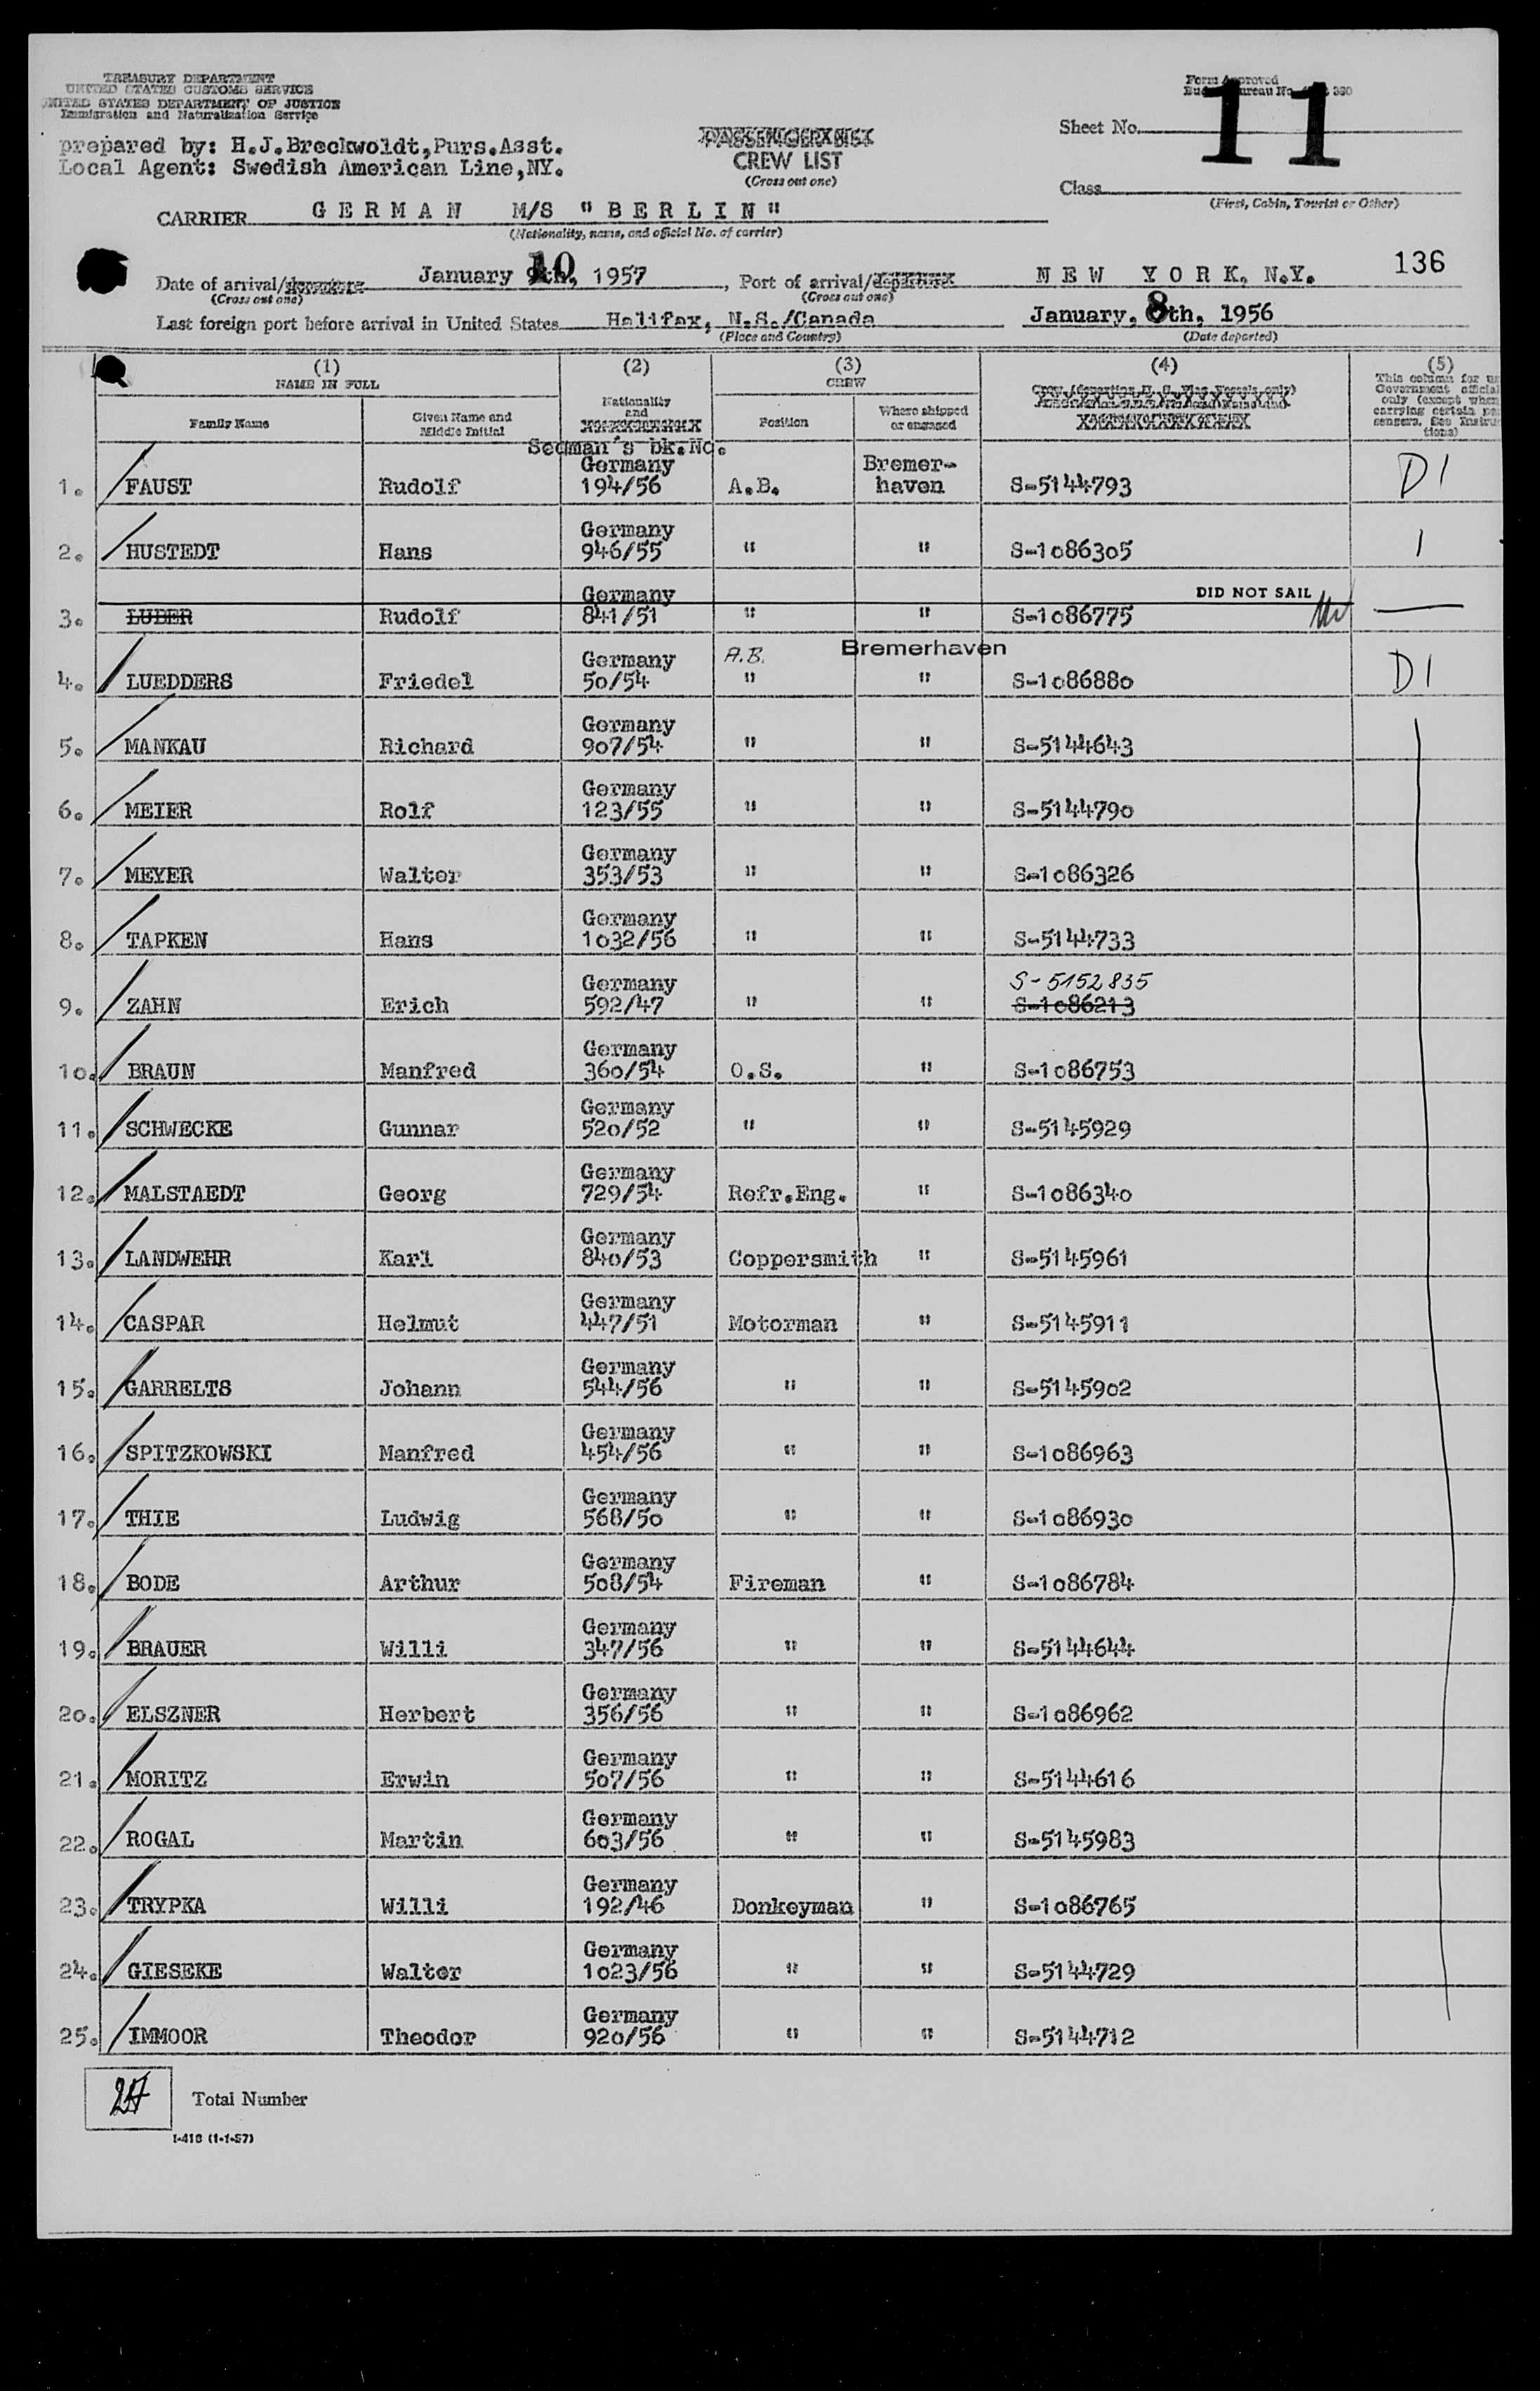 TREASURY DEPARTMENT
UNITED STATES CUSTOMS SERVICE
UNITED STATES DEPARTMENT OF JUSTICE
Immigration and Naturalization Service
Form Approved
prepared by: H.J.Breckwoldt,Purs.Asst.
Local Agent: Swedish American Line,NY.
PASSENGER LIST
CREW LIST
(Cross out one)
Sheet No. 11
Class
(First, Cabin, Tourist or Other)
CARRIER GERMAN M/S "BERLIN"
(Nationality, name, and official No. of carrier)
Date of arrival/departure January 10, 1957, Port of arrival/departure NEW YORK, N.Y. 136
(Cross out one) (Cross out one)
Last foreign port before arrival in United States Halifax, N.S./Canada January, 8th, 1956
(Place and Country) (Date departed)
(1) (2) (3) (4) (5)
NAME IN FULL CREW
Family Name Given Name and Middle Initial Nationality and Position Where shipped or engaged
This column for
Government official
only (except when
carrying certain
Seaman's bk.No.
1. FAUST Rudolf Germany 194/56 A.B. Bremer-haven S-5144793 D1
2. HUSTEDT Hans Germany 946/55 " " S-1086305 1
DID NOT SAIL
3. LUBER Rudolf Germany 841/51 " " S-1086775
A.B. Bremerhaven
4. LUEDDERS Friedel Germany 50/54 " " S-1086880 D1
5. MANKAU Richard Germany 907/54 " " S-5144643
6. MEIER Rolf Germany 123/55 " " S-5144790
7. MEYER Walter Germany 353/53 " " S-1086326
8. TAPKEN Hans Germany 1032/56 " " S-5144733
S-5152835
9. ZAHN Erich Germany 592/47 " " S-1086213
10. BRAUN Manfred Germany 360/54 O.S. " S-1086753
11. SCHWECKE Gunnar Germany 520/52 " " S-5145929
12. MALSTAEDT Georg Germany 729/54 Refr.Eng. " S-1086340
13. LANDWEHR Karl Germany 840/53 Coppersmith " S-5145961
14. CASPAR Helmut Germany 447/51 Motorman " S-5145911
15. GARRELTS Johann Germany 544/56 " " S-5145902
16. SPITZKOWSKI Manfred Germany 454/56 " " S-1086963
17. THIE Ludwig Germany 568/50 " " S-1086930
18. BODE Arthur Germany 508/54 Fireman " S-1086784
19. BRAUER Willi Germany 347/56 " " S-5144644
20. ELSZNER Herbert Germany 356/56 " " S-1086962
21. MORITZ Erwin Germany 507/56 " " S-5144616
22. ROGAL Martin Germany 603/56 " " S-5145983
23. TRYPKA Willi Germany 192/46 Donkeyman " S-1086765
24. GIESEKE Walter Germany 1023/56 " " S-5144729
25. IMMOOR Theodor Germany 920/56 " " S-5144712
Total Number
I-418 (1-1-57)